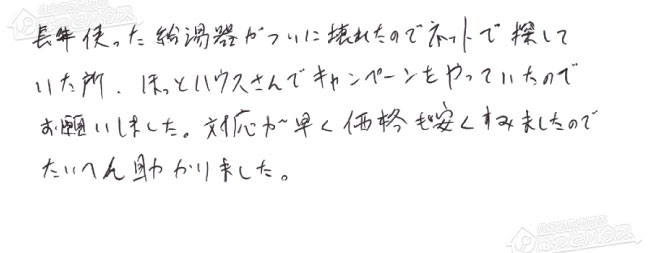 長年使った給湯器がついに壊れたのでネットで探して
いた所、ほっとハウスさんでキャンペーンをやっていたので
お願いしました。対応が早く価格も安くすみましたので
たいへん助かりました。